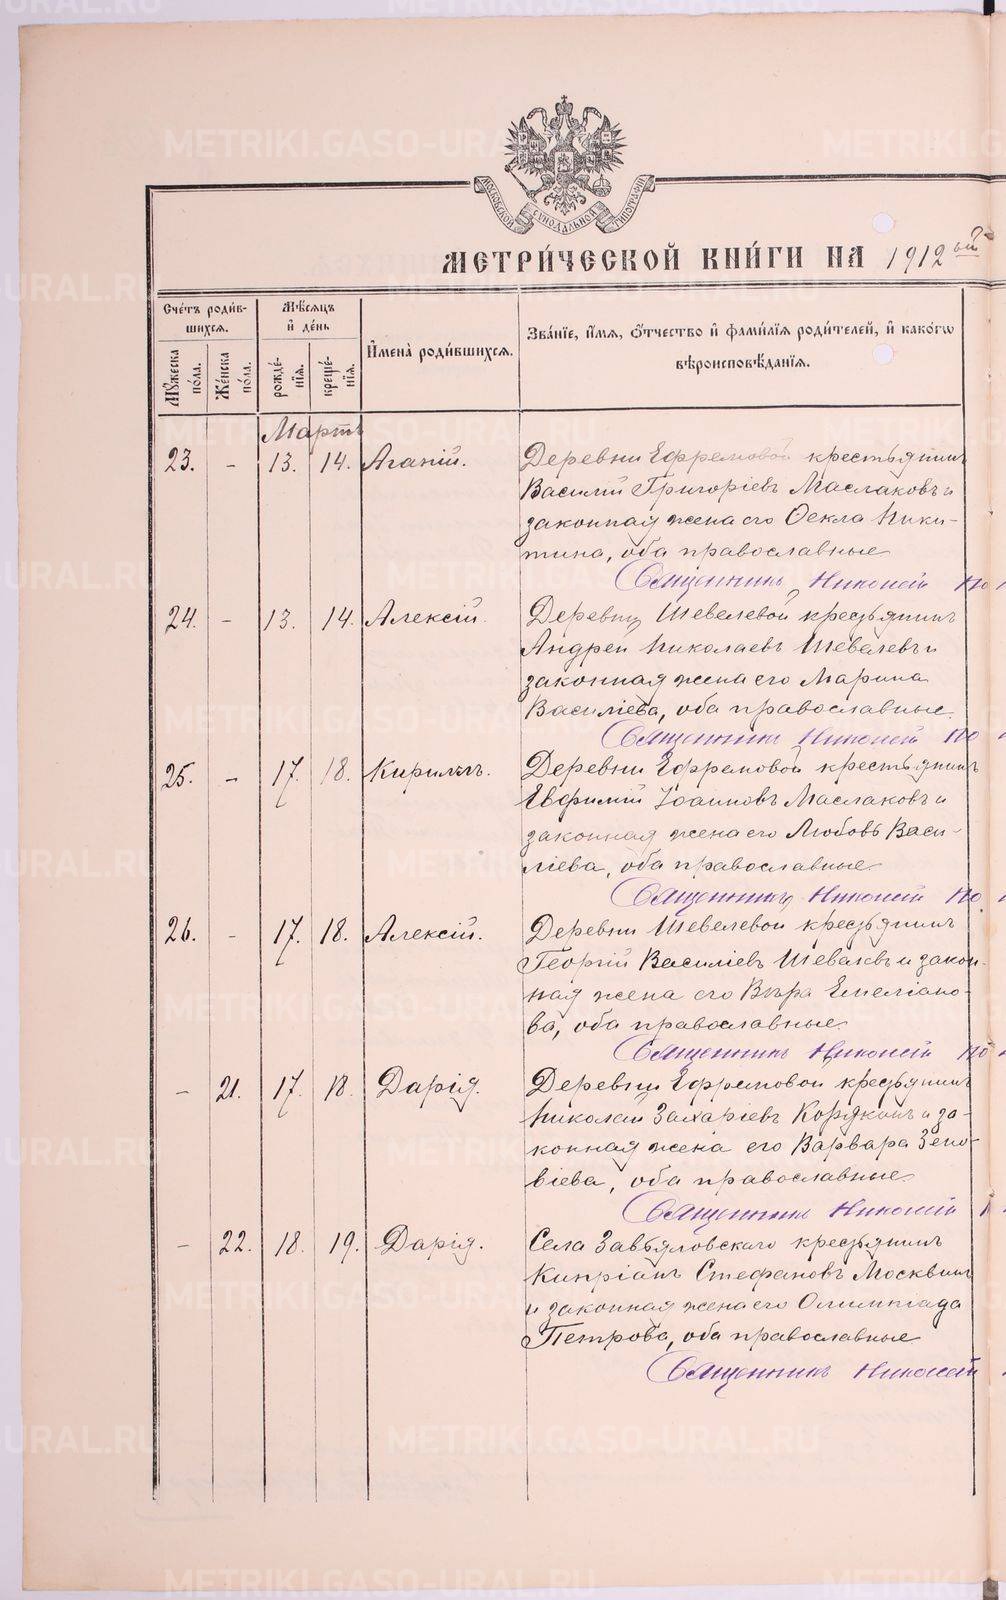 МОСКОВСКОЙ СѴНОДАЛЬНОЙ ТИПОГРАФІИ
МЕТРИ́ЧЕСКОЙ КНИ́ГИ НА 1912ый
Сче́тъ роди́вшихся.
Мѣ́сяцъ и҆ де́нь
И҆мена̀ роди́вшихся.
Зва́нїе, и҆́мя, ѻ҆́тчество и҆ фами́лїя роди́телей, и҆ како́гѡ
вѣроисповѣ́данїя.
Мꙋ́жеска по́ла.
Же́нска по́ла.
рожде́нїя.
креще́нїя.
Мартъ
23. - 13. 14. Агапій. Деревни Ефремовой крестьянинъ
Василій Григоріевъ Маслаковъ и
законная жена его Ѳекла Ники-
тина, оба православные
Священникъ Николай По
24. - 13. 14. Алексій. Деревни Шевелевой крестьянинъ
Андрей Николаевъ Шевелевъ и
законная жена его Марина
Василіева, оба православные.
Священникъ Николай По
25. - 17. 18. Кириллъ. Деревни Ефремовой крестьянинъ
Евфимій Іоанновъ Маслаковъ и
законная жена его Любовь Васи-
ліева, оба православные.
Священникъ Николай По
26. - 17. 18. Алексій. Деревни Шевелевой крестьянинъ
Георгій Василіевъ Шевелевъ и закон-
ная жена его Вѣра Емеліано-
ва, оба православные.
Священникъ Николай По
- 21. 17. 18. Дарія. Деревни Ефремовой крестьянинъ
Николай Захаріевъ Корякинъ и за-
конная жена его Варвара Зено-
віева, оба православные.
Священникъ Николай
- 22. 18. 19. Дарія. Села Завьяловскаго крестьянинъ
Кипріанъ Стефановъ Москвинъ
и законная жена его Олимпіада
Петрова, оба православные
Священникъ Николай
METRIKI.GASO-URAL.RU